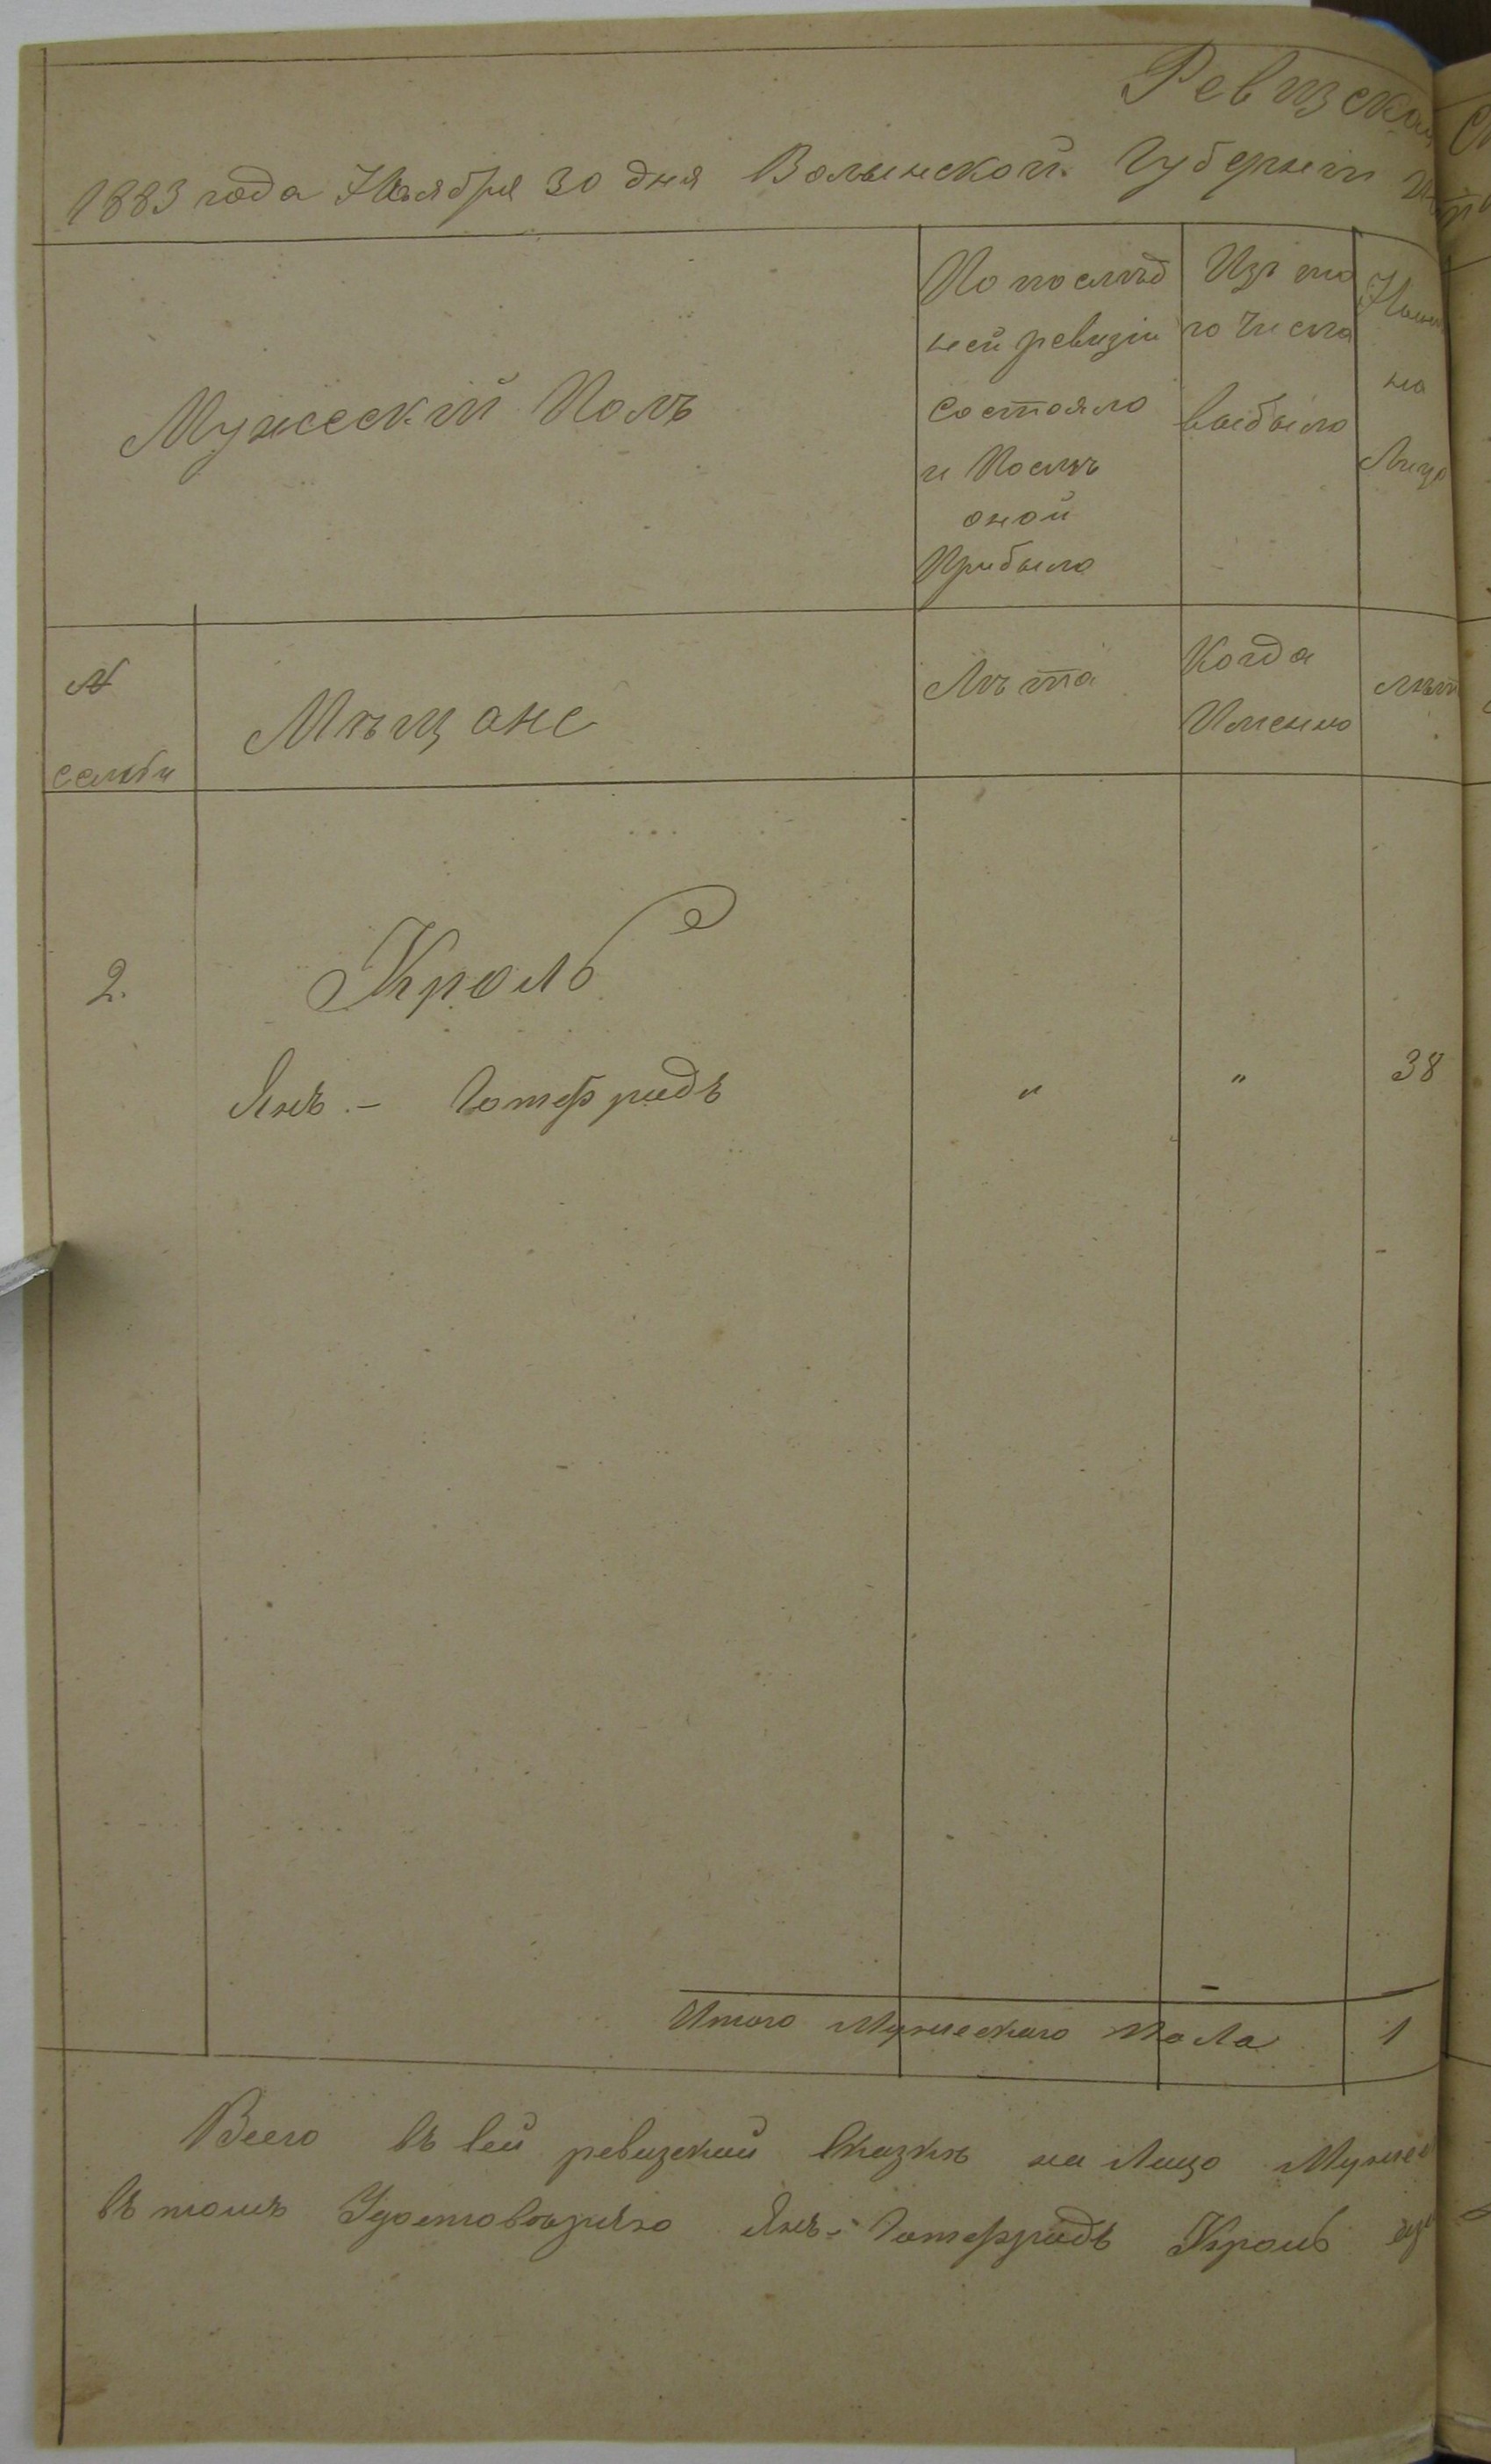 Ревизская
1883 года Ноября 30 дня Волынской Губерніи
Мужескій Полъ
По послѣд
ней ревизіи
состояло
и Послѣ
оной
Прибыло
Изъ то
го числа
выбыло
Нынѣ
на
Лицо
№
семьи
Мѣщане
Лѣта
Когда
Именно
лѣта
2.
Кроль
Янъ - Готфридъ
"
"
38
Итого Мужескаго Пола 1
Всего въ сей ревизской сказкѣ на Лицо Мужес
въ томъ Удостовѣряю Янъ-Готфридъ Кроль